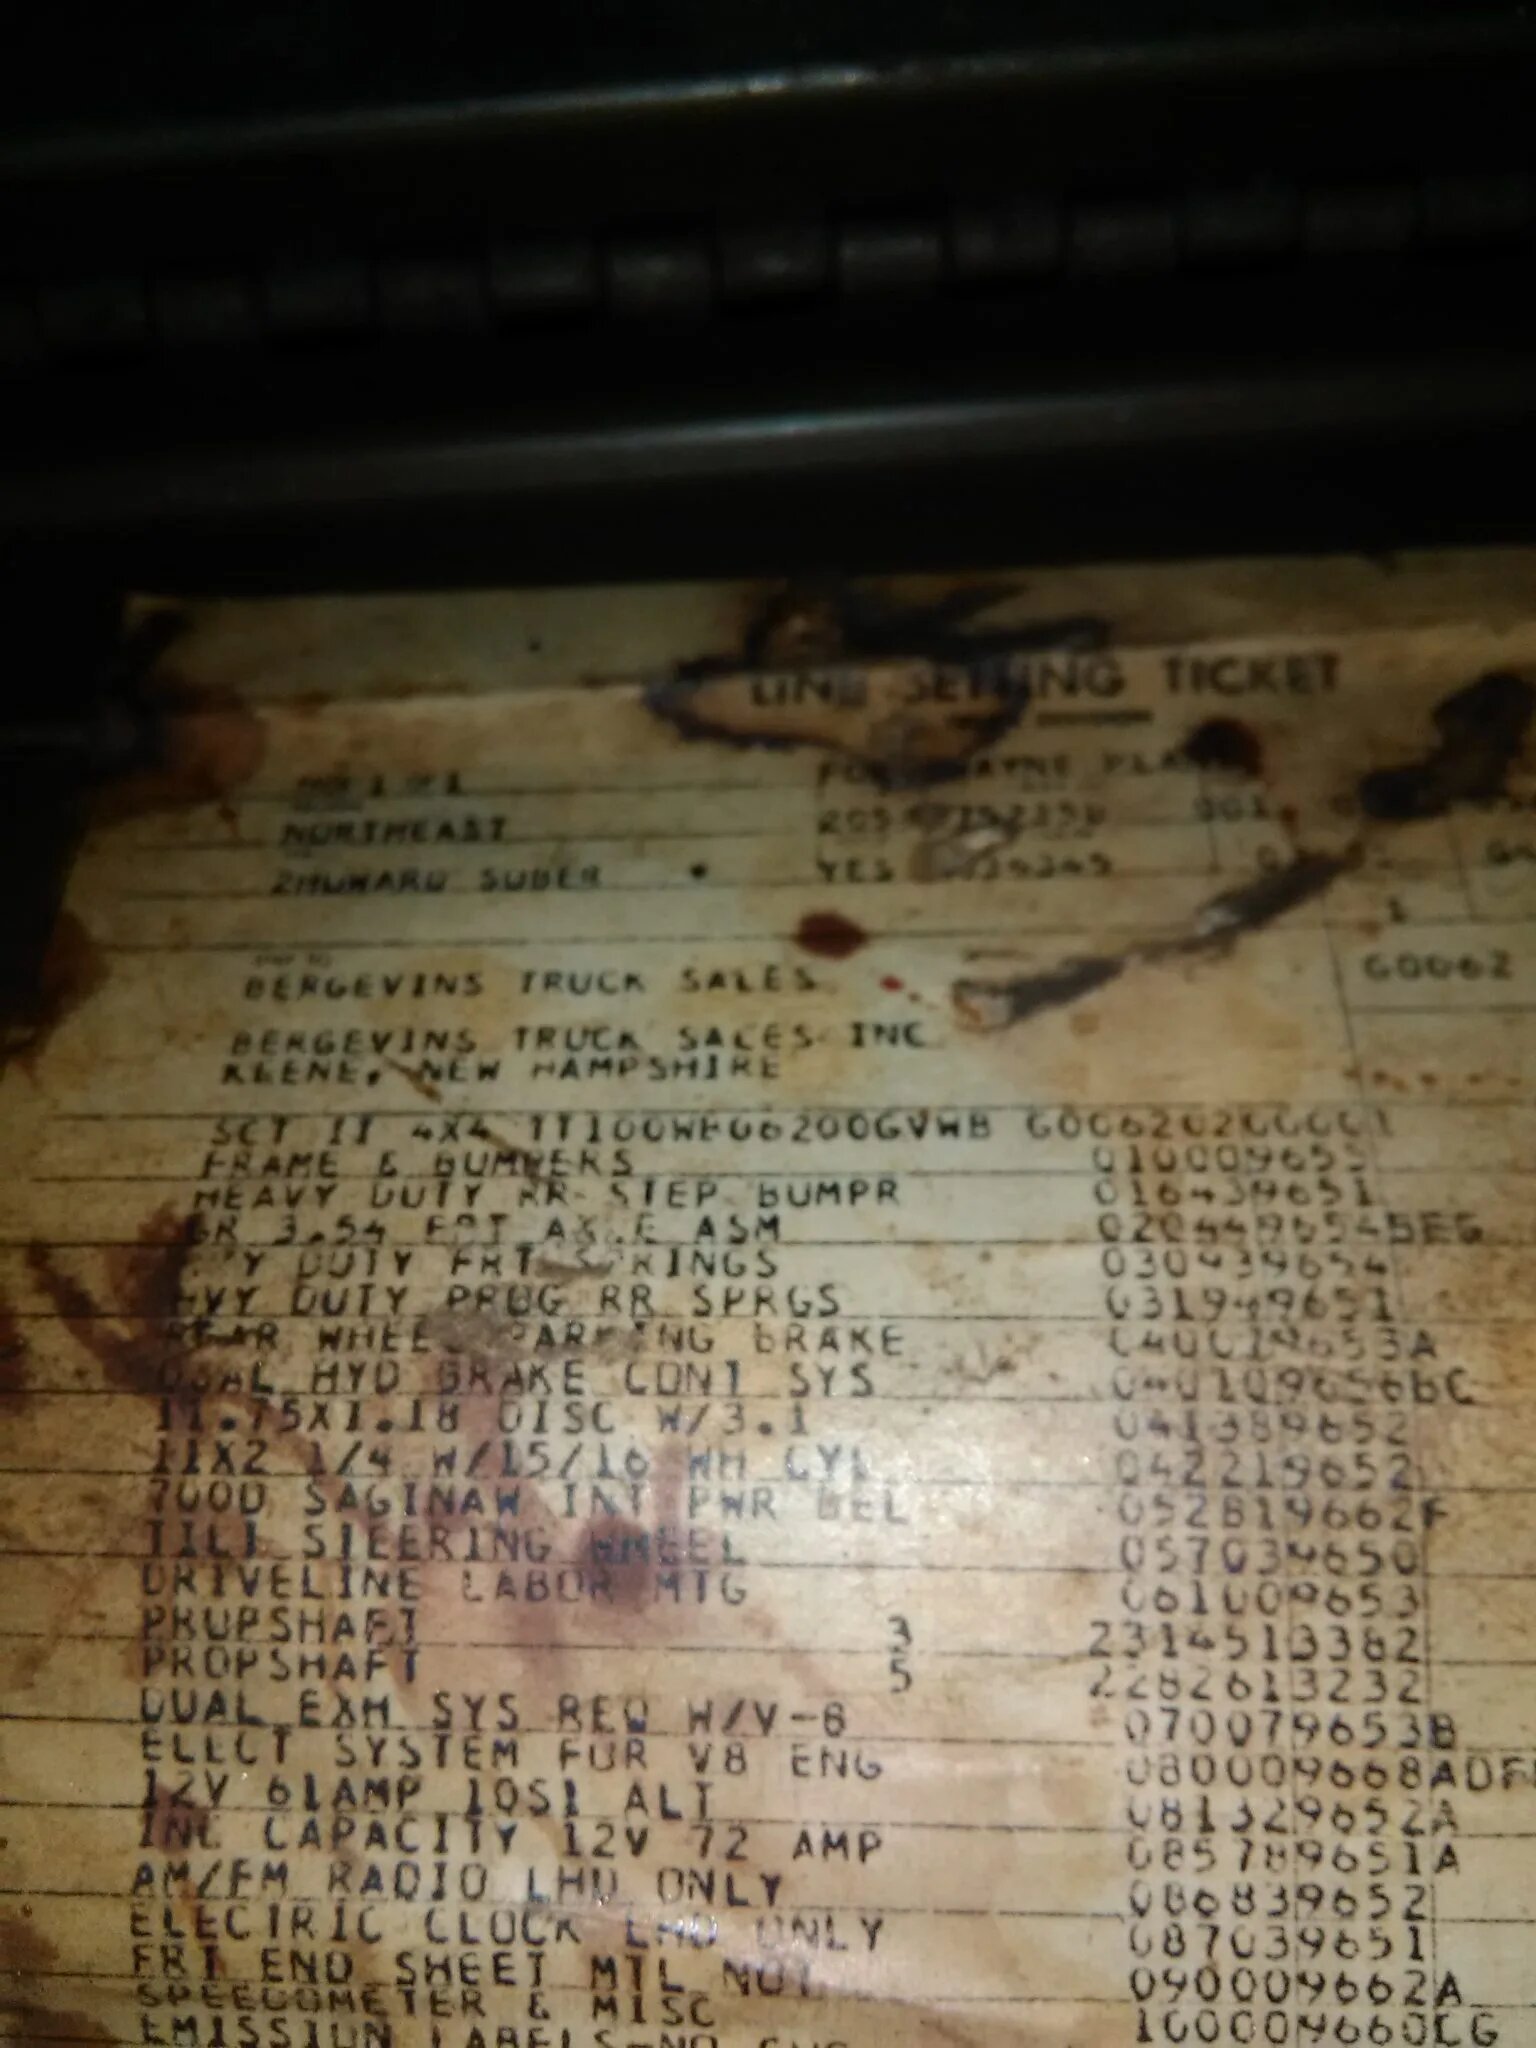 LINE SETTING TICKET
FORT WAYNE PLANT
NORTHEAST 001
2HOWARD SUBER YES
1
BERGEVINS TRUCK SALES G0062
BERGEVINS TRUCK SALES INC
KEENE, NEW HAMPSHIRE
SCT II 4X4 TT100WB06200GVWB G0062020G0001
FRAME & BUMPERS 010009655
HEAVY DUTY RR STEP BUMPR 016439651
GR 3.54 FRT AXLE ASM
DUTY FRT SPRINGS 030439654
HVY DUTY PROG RR SPRGS 031949651
REAR WHEEL PARKING BRAKE 040019653A
DUAL HYD BRAKE CONT SYS 040109656BC
11.75X1.18 DISC W/3.1 041389652
11X2 1/4 W/15/16 WH CYL 042219652
700D SAGINAW INT PWR BEL 052819662F
TILT STEERING WHEEL 057039650
DRIVELINE LABOR MTG 061009653
PROPSHAFT 3 2314513382
PROPSHAFT 5 2282613232
DUAL EXH SYS REQ W/V-8 070079653B
ELECT SYSTEM FOR V8 ENG 080009668ADF
12V 61AMP 10SI ALT 081329652A
INC CAPACITY 12V 72 AMP 085789651A
AM/FM RADIO LHD ONLY 086839652
ELECTRIC CLOCK LHD ONLY 087039651
FRT END SHEET MTL NOT 090009662A
SPEEDOMETER & MISC 100009660CG
EMISSION LABELS-NO